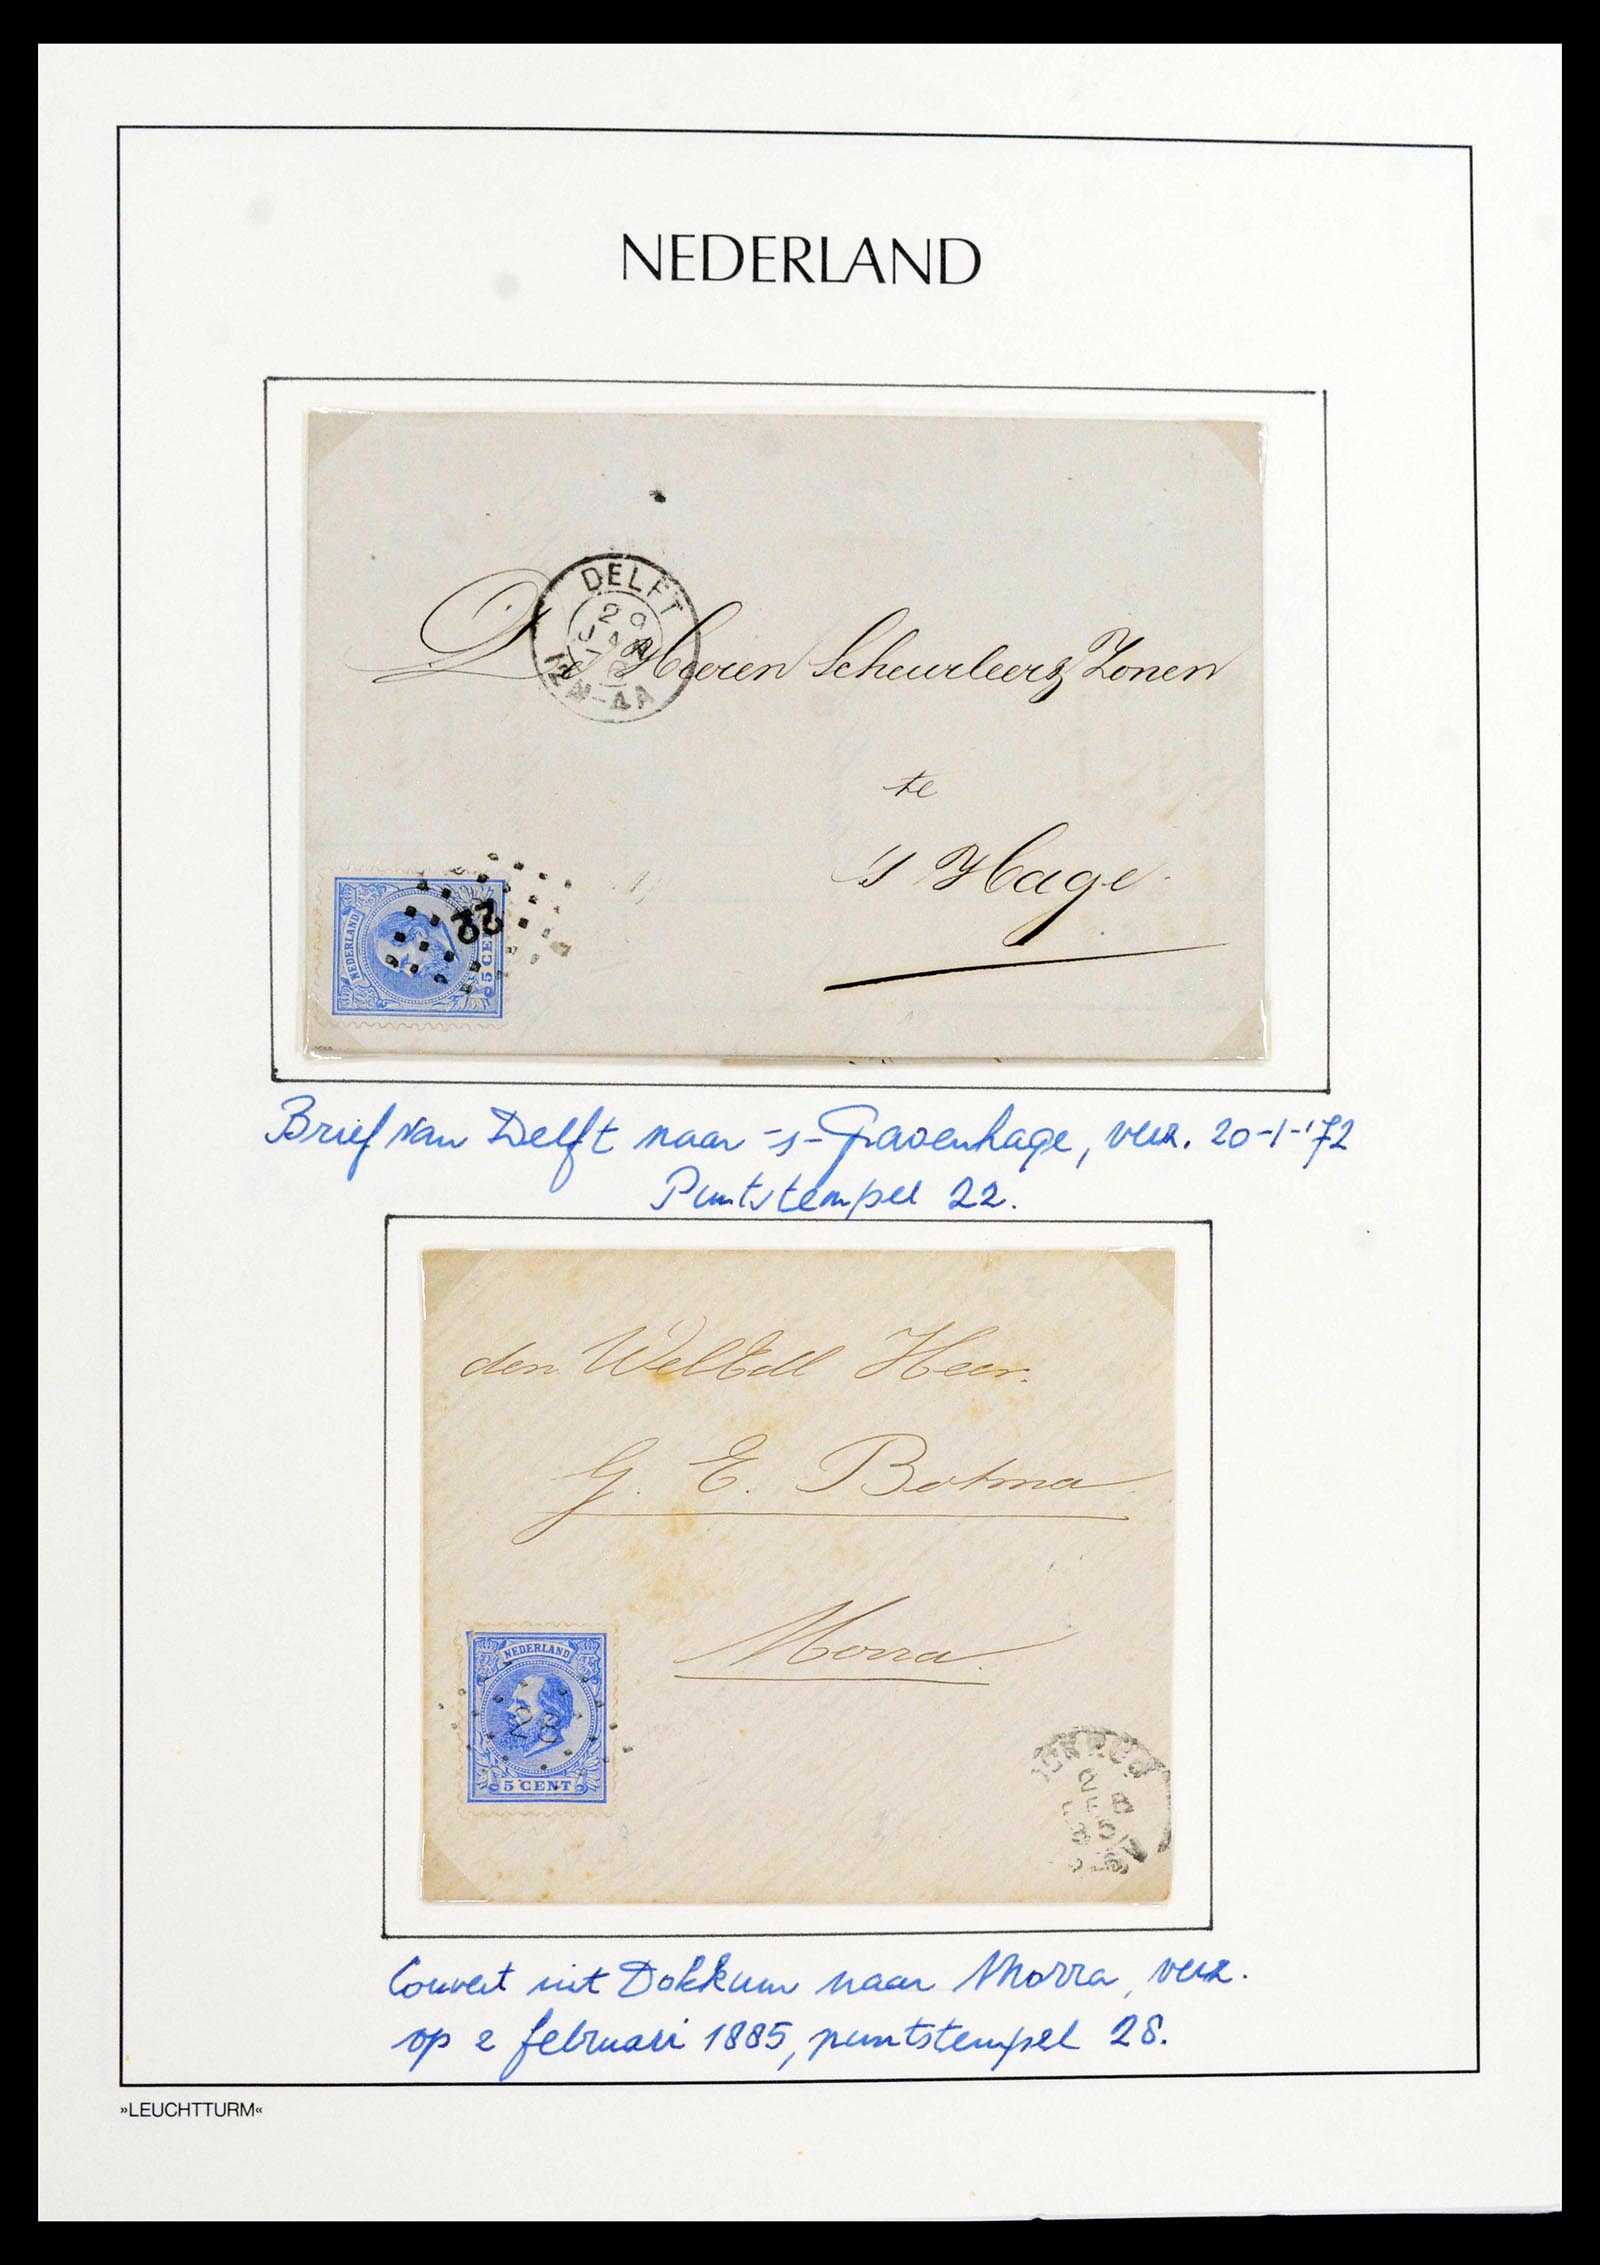 NEDERLAND
DELFT
20
JAN
12M-4A
De Heeren Scheurleer & Zonen
te
's Hage
NEDERLAND
5 CENT
22
Brief van Delft naar -s-Gravenhage, verz. 20-1-'72
Puntstempel 22.
den WelEdl Heer.
G. E. Botma
Morra.
NEDERLAND
28
5 CENT
2 FE
Couvert uit Dokkum naar Morra, verz.
op 2 februari 1885, puntstempel 28.
»LEUCHTTURM«